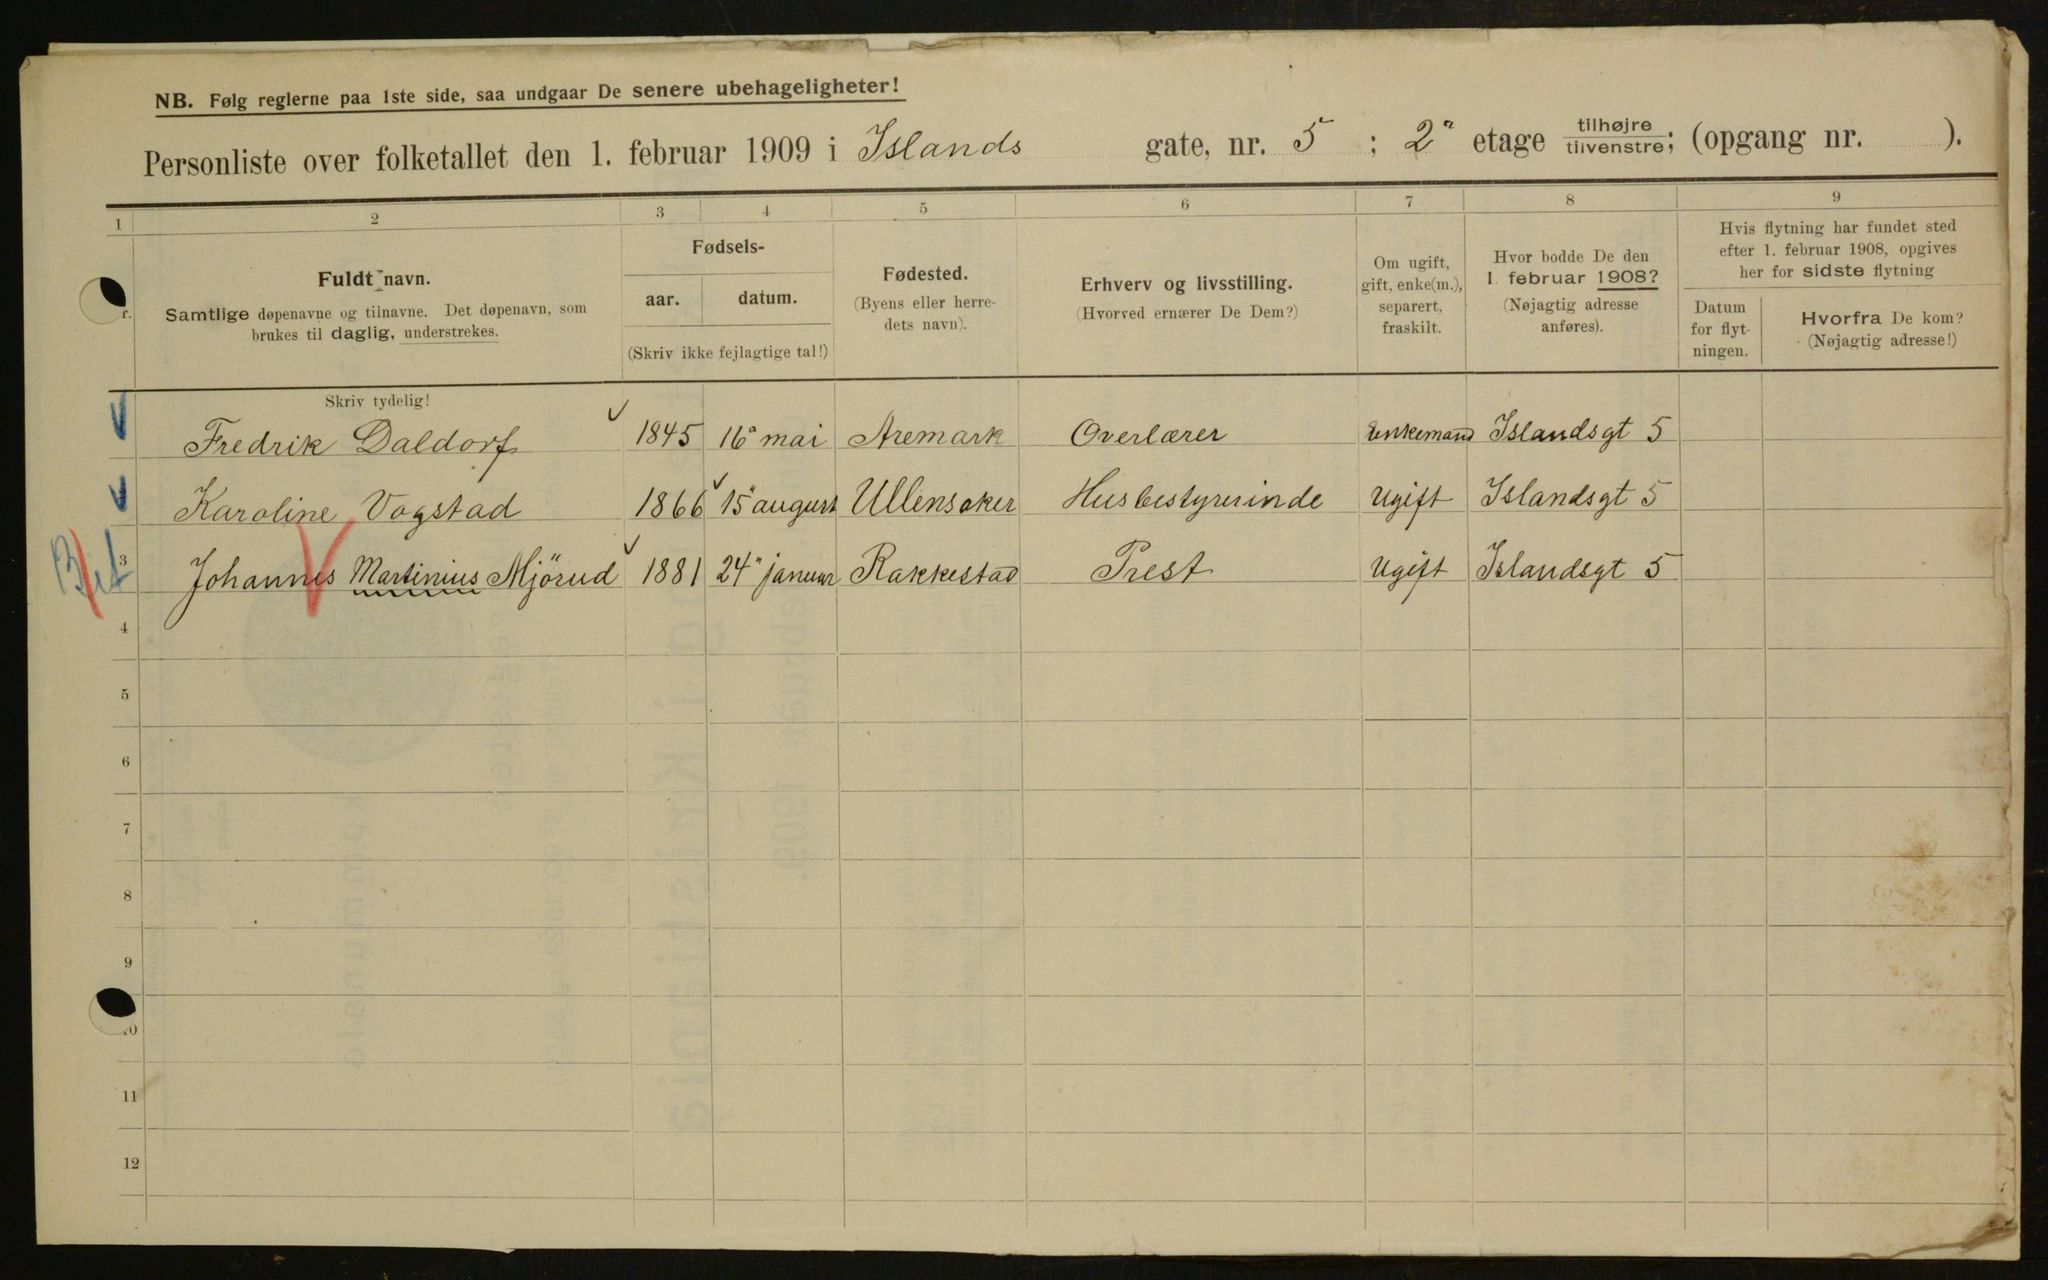 NB. Følg reglerne paa 1ste side, saa undgaar De senere ubehageligheter!
Personliste over folketallet den 1. februar 1909 i Islands gate, nr. 5 ; 2" etage tilhøjre tilvenstre; (opgang nr. ).
1 2 3 4 5 6 7 8 9
Fuldt navn.
Samtlige døpenavne og tilnavne. Det døpenavn, som
brukes til daglig, understrekes.
Fødsels-
aar. datum.
(Skriv ikke fejlagtige tal!)
Fødested.
(Byens eller herre-
dets navn).
Erhverv og livsstilling.
(Hvorved ernærer De Dem?)
Om ugift,
gift, enke(m.),
separert,
fraskilt.
Hvor bodde De den
1. februar 1908?
(Nøjagtig adresse
anføres).
Hvis flytning har fundet sted
efter 1. februar 1908, opgives
her for sidste flytning
Datum
for flyt-
ningen.
Hvorfra De kom?
(Nøjagtig adresse!)
Skriv tydelig!
Fredrik Daldorf 1845 16" mai Aremark Overlærer Enkemand Islandsgt 5
Karoline Vogstad 1866 15" august Ullensaker Husbestyrerinde Ugift Islandsgt 5
3 Johannes Martinius Mjörud 1881 24" januar Rakkestad Prest Ugift Islandsgt 5
4
5
6
7
8
9
10
11
12